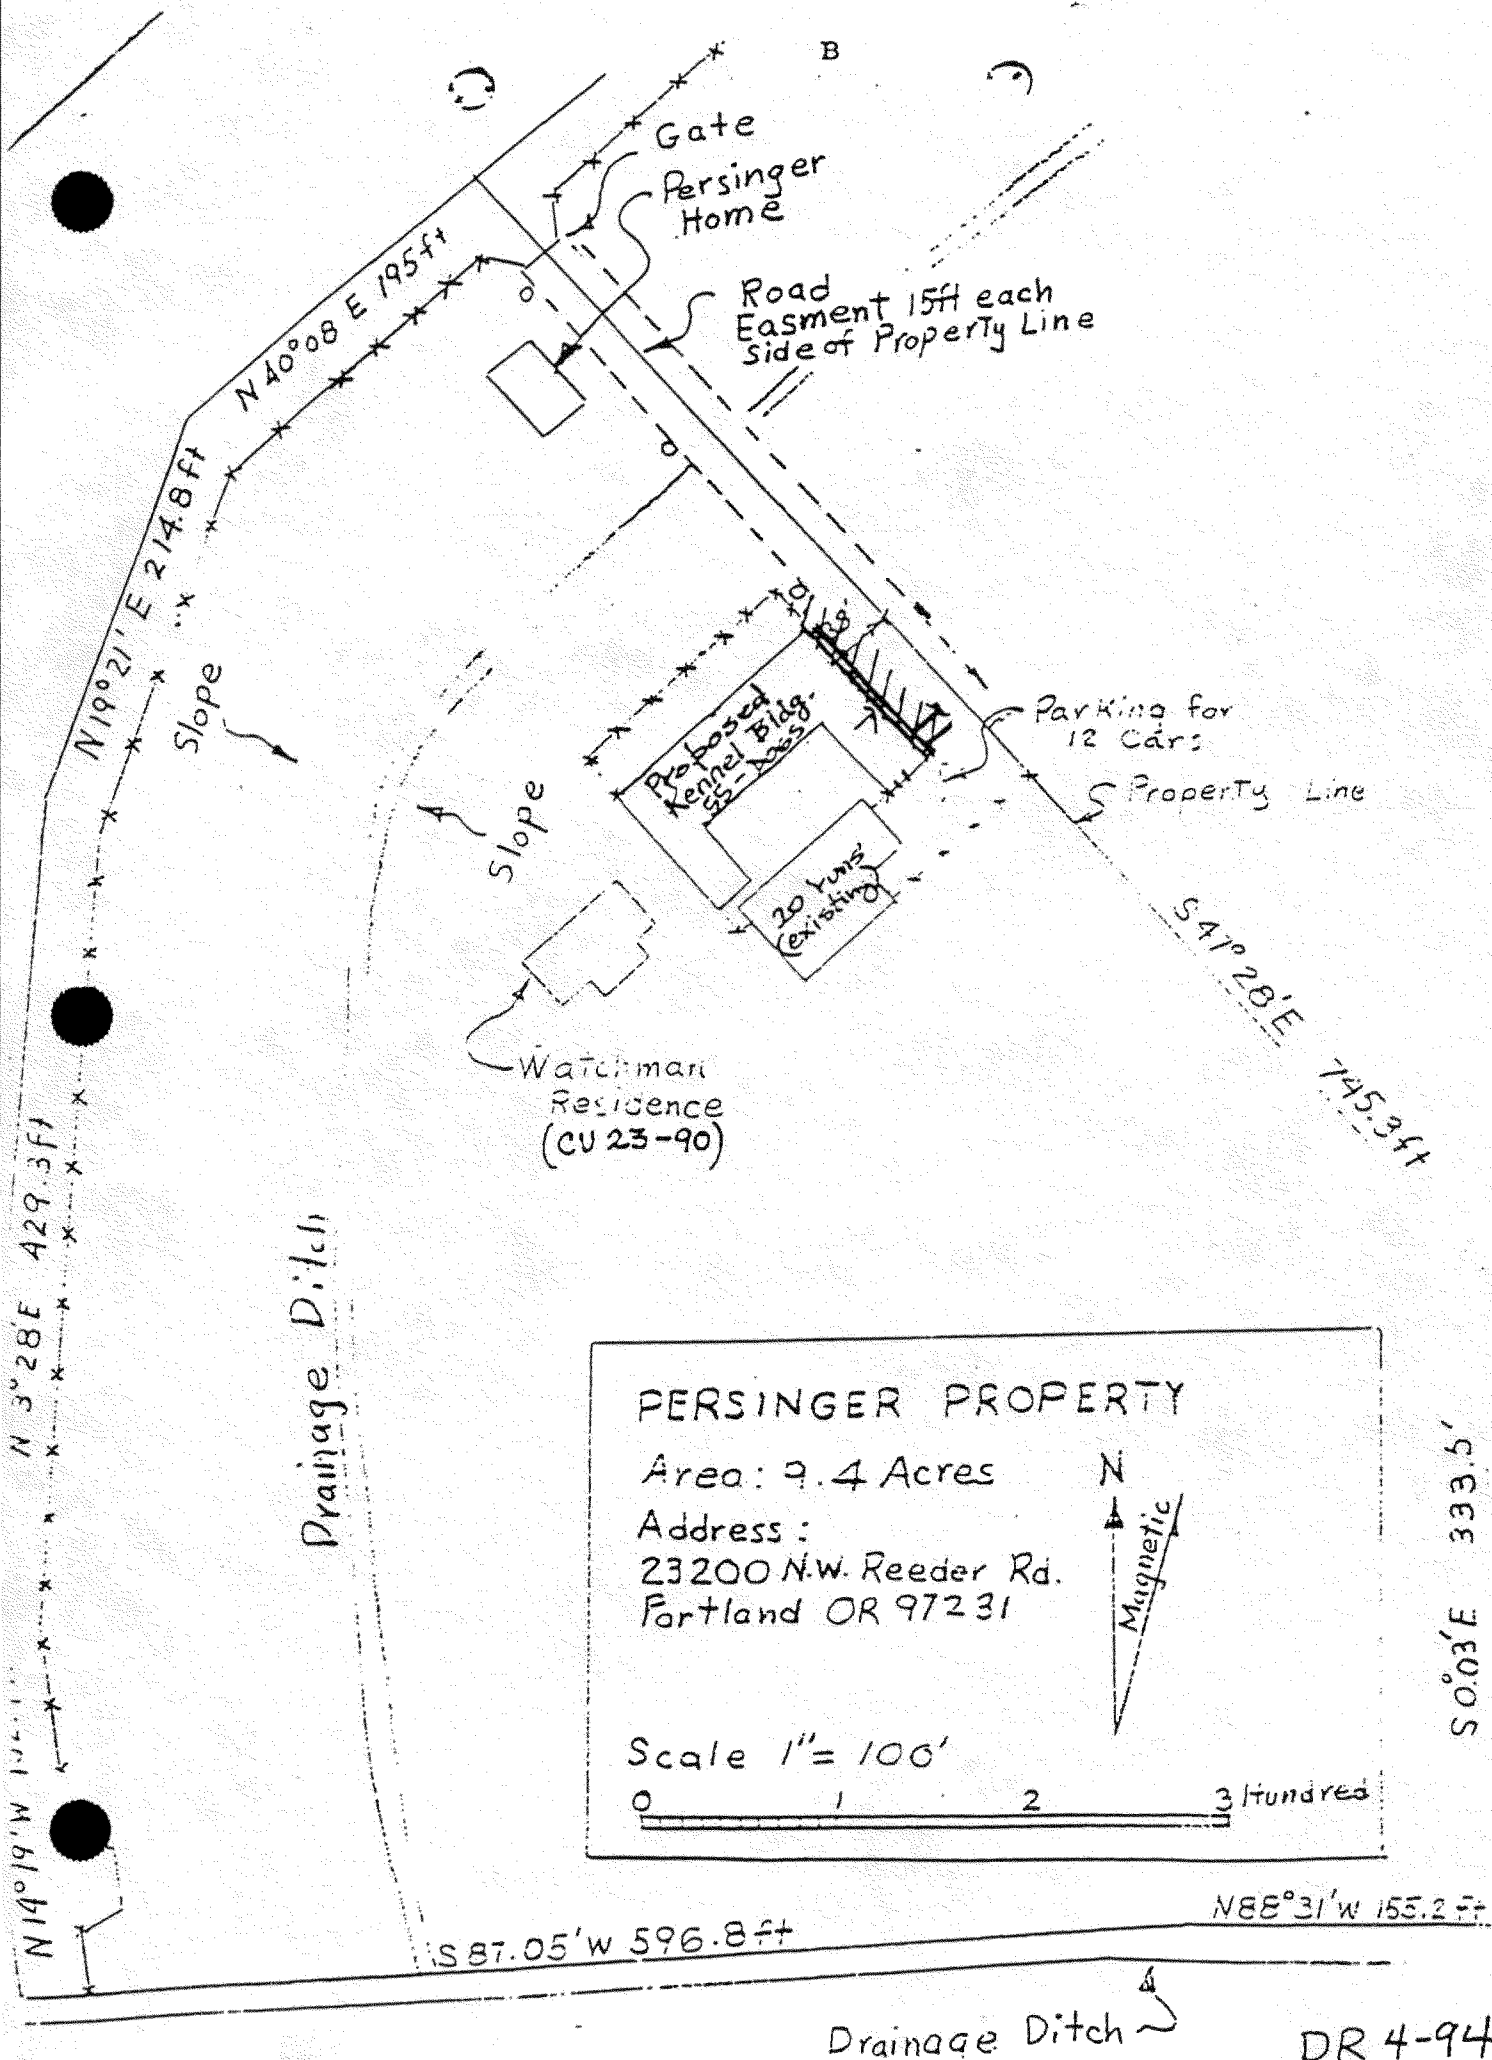 B
Gate
Persinger
Home
Road
Easment 15ft each
side of Property Line
N 40°08 E 195ft
N 19°21' E 214.8ft
Slope
Slope
Proposed
Kennel Bldg.
55-Dogs
20 runs
(existing)
Parking for
12 Cars
Property Line
S 47°28'E 745.3ft
Watchman
Residence
(CU 23-90)
N 3°28'E 429.3ft
Drainage Ditch
N 14°19'W
PERSINGER PROPERTY
Area: 9.4 Acres
N
Magnetic
Address:
23200 N.W. Reeder Rd.
Portland OR 97231
Scale 1"= 100'
0 1 2 3 Hundred
S 0°03'E 333.5'
S 87.05'W 596.8ft
N88°31'W 155.2 ft
Drainage Ditch
DR 4-94